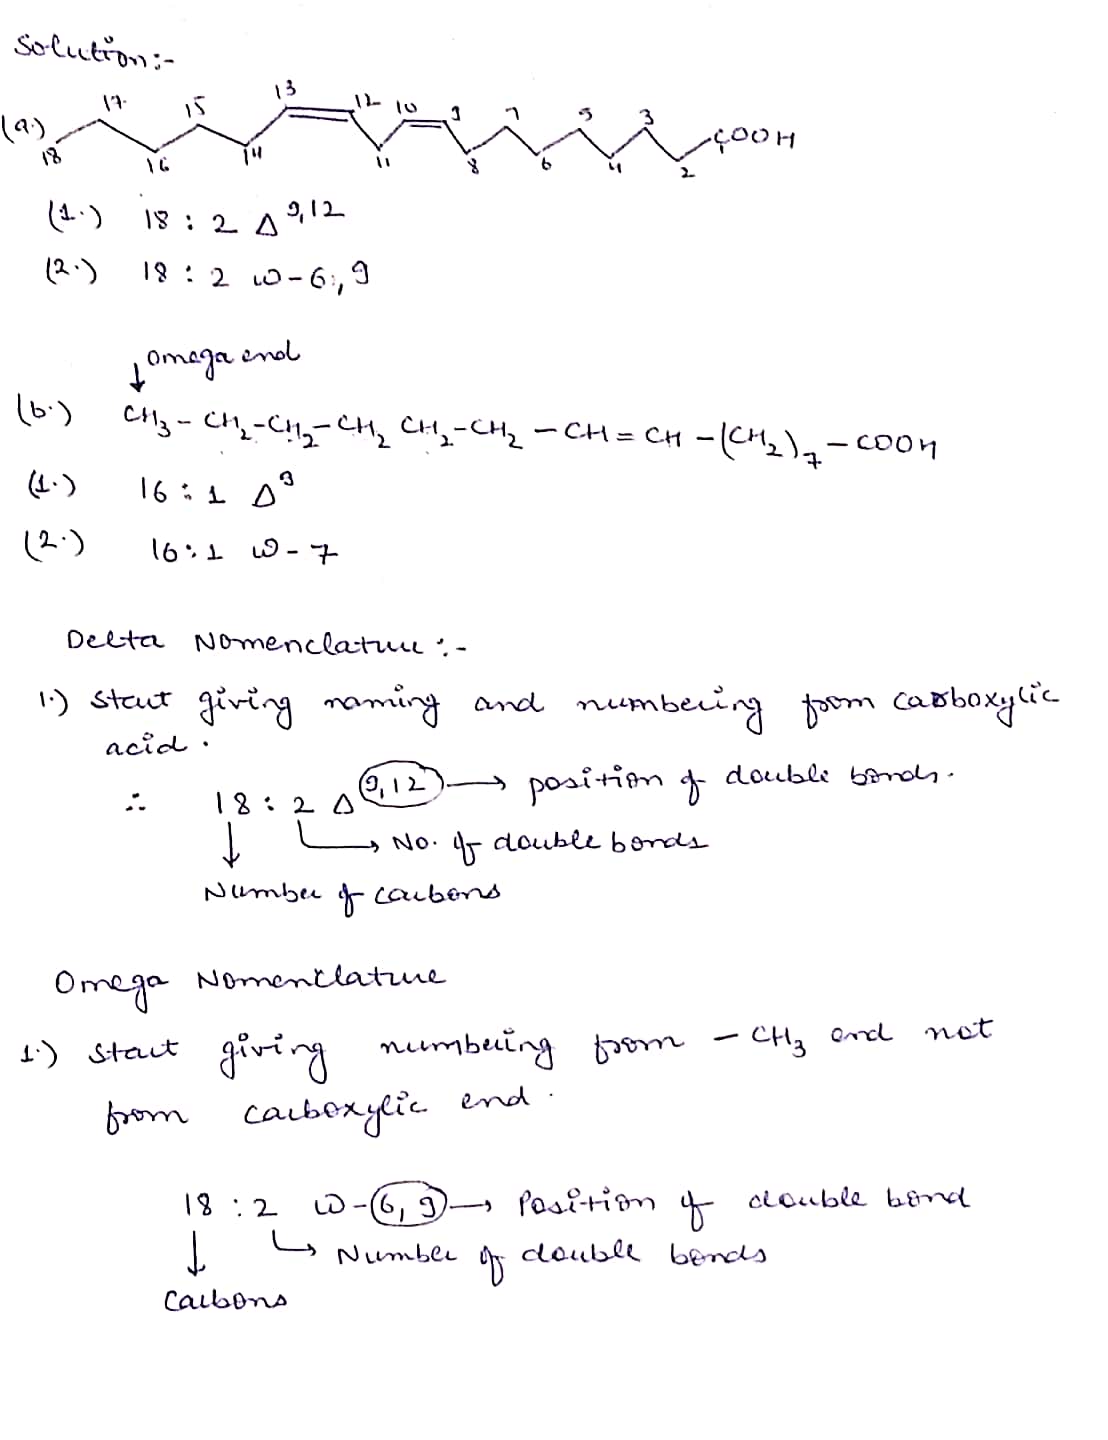 Solution:-
(a.) 18 17 16 15 14 13 12 11 10 9 8 7 6 5 4 3 2 COOH
(1.) 18 : 2 Δ^9,12
(2.) 18 : 2 ω-6,9
↓ Omega end
(b.) CH₃ - CH₂-CH₂-CH₂ CH₂-CH₂ - CH = CH -(CH₂)₇ - COOH
(1.) 16 : 1 Δ^9
(2.) 16:1 ω-7
Delta Nomenclature :-
1.) Start giving naming and numbering from carboxylic
acid.
∴ 18 : 2 Δ^9,12 → position of double bonds.
↓ → No. of double bonds
Number of carbons
Omega Nomenclature
1.) Start giving numbering from - CH₃ end not
from carboxylic end.
18 : 2 ω-6,9 → Position of double bond
↓ → Number of double bonds
Carbons